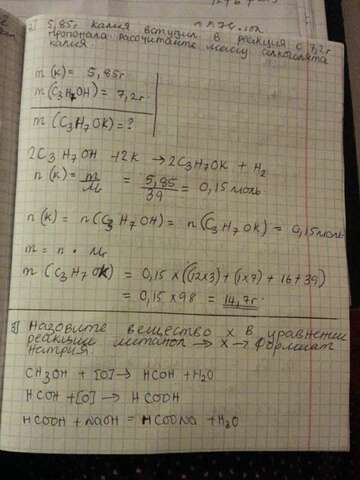 2) 5,85г калия вступил в реакция с 7,2г
пропанола рассчитайте массу алкоголята
калия.
m (к) = 5,85г
m(C3H7OH) = 7,2г.
m (C3H7OK) = ?
2C3H7OH + 2K → 2C3H7OK + H2
n (к) = m/Mr = 5,85/39 = 0,15 моль
n (к) = n(C3H7OH) = n(C3H7OK) = 0,15 моль
m = n · Mr
m (C3H7OK) = 0,15 x ((12x3) + (1x7) + 16 + 39)
= 0,15 x 98 = 14,7г.
3) Назовите вещество X в уравнении
реакции метанол → X → формиат
натрия
CH3OH + [O] → HCOH + H2O
HCOH + [O] → HCOOH
HCOOH + NaOH = HCOONa + H2O